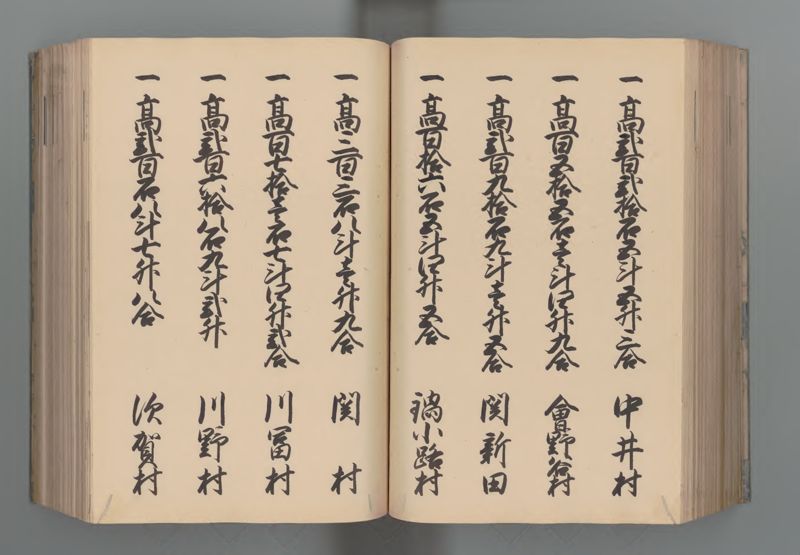 一 高弐百弐拾石五斗五升二合 中井村
一 高百五拾五石壱斗四升九合 會野谷村
一 高弐百九拾石九斗壱升五合 関新田
一 高百拾六石五斗四升五合 小路村
一 高二百二石八斗壱升九合 関村
一 高百七拾壱石七斗四升弐合 川冨村
一 高弐百六拾八石九斗弐升 川野村
一 高弐百石八斗七升八合 須賀村